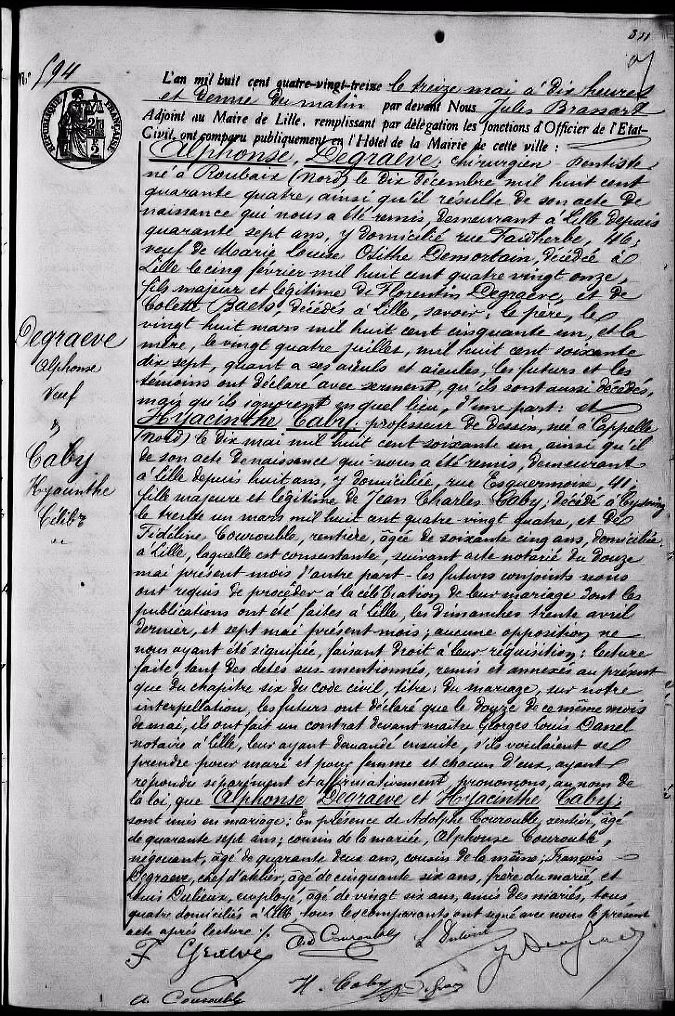 311
N° 594
L'an mil huit cent quatre-vingt-treize le treize mai à dix heures
et demie du matin par devant Nous Jules Brassart
Adjoint au Maire de Lille, remplissant par délégation les fonctions d'Officier de l'Etat-
Civil, ont comparu publiquement en l'Hôtel de la Mairie de cette ville :
REPUBLIQUE FRANÇAISE
Alphonse, Degraeve, chirurgien-dentiste,
né à Roubaix (Nord) le dix décembre mil huit cent
quarante quatre, ainsi qu'il résulte de son acte de
naissance qui nous a été remis, demeurant à Lille depuis
quarante sept ans, y domicilié rue Faidherbe, 46,
veuf de Marie Louise Osithe Demortain, décédée à
Lille le cinq février mil huit cent quatre vingt onze,
fils majeur et légitime de Florentin Degraeve, et de
Colette Baets, décédés à Lille, savoir: le père, le
vingt huit mars mil huit cent cinquante un, et la
mère, le vingt quatre juillet, mil huit cent soixante
dix sept, quant a ses aïeuls et aïeules, les futurs et les
témoins ont déclaré avec serment, qu'ils sont aussi décédés,
mais qu'ils ignorent en quel lieu, d'une part: et
Hyacinthe Caby, professeur de dessin, née à Cappelle
(Nord) le dix mai mil huit cent soixante un ainsi qu'il
de son acte de naissance qui nous a été remis, demeurant
à Lille depuis huit ans, y domiciliée, rue Esquermoise, 41,
fille majeure et légitime de Jean Charles Caby, décédé à Cysoing
le trente un mars mil huit cent quatre-vingt quatre, et de
Fidéline Courouble, rentière, âgée de soixante cinq ans, domiciliée
à Lille, laquelle est consentante, suivant acte notarié du douze
mai présent mois d'autre part - les futurs conjoints nous
ont requis de procéder à la célébration de leur mariage dont les
publications ont été faites à Lille, les dimanches trente avril
dernier, et sept mai présent mois; aucune opposition ne
nous ayant été signifiée, faisant droit à leur réquisition: lecture
faite tant des actes sus mentionnés, remis et annexés au présent
que du chapitre six du code civil, titre: du mariage, sur notre
interpellation, les futurs ont déclaré que le douze de ce même mois
de mai, ils ont fait un contrat devant maître Georges Louis Danel
notaire à Lille, leur ayant demandé ensuite, s'ils voulaient se
prendre pour mari et pour femme et chacun d'eux, ayant
répondu séparément et affirmativement, prononçons, au nom de
la loi, que Alphonse Degraeve et Hyacinthe Caby;
sont unis en mariage: En présence de Adolphe Courouble, rentier, âgé
de quarante sept ans; cousin de la mariée, Alphonse Courouble,
négociant, âgé de quarante deux ans, cousin de la même; François
Degraeve, chef d'atelier, âgé de cinquante six ans, frère du marié, et
Louis Dubieux, employé, âgé de vingt six ans, amis des mariés, tous
quatre domiciliés à Lille, tous les comparants ont signé avec nous le présent
acte après lecture ./.
Degraeve
Alphonse
Veuf
&
Caby
Hyacinthe
Célib.
Ad Courouble
H. Caby
A Courouble